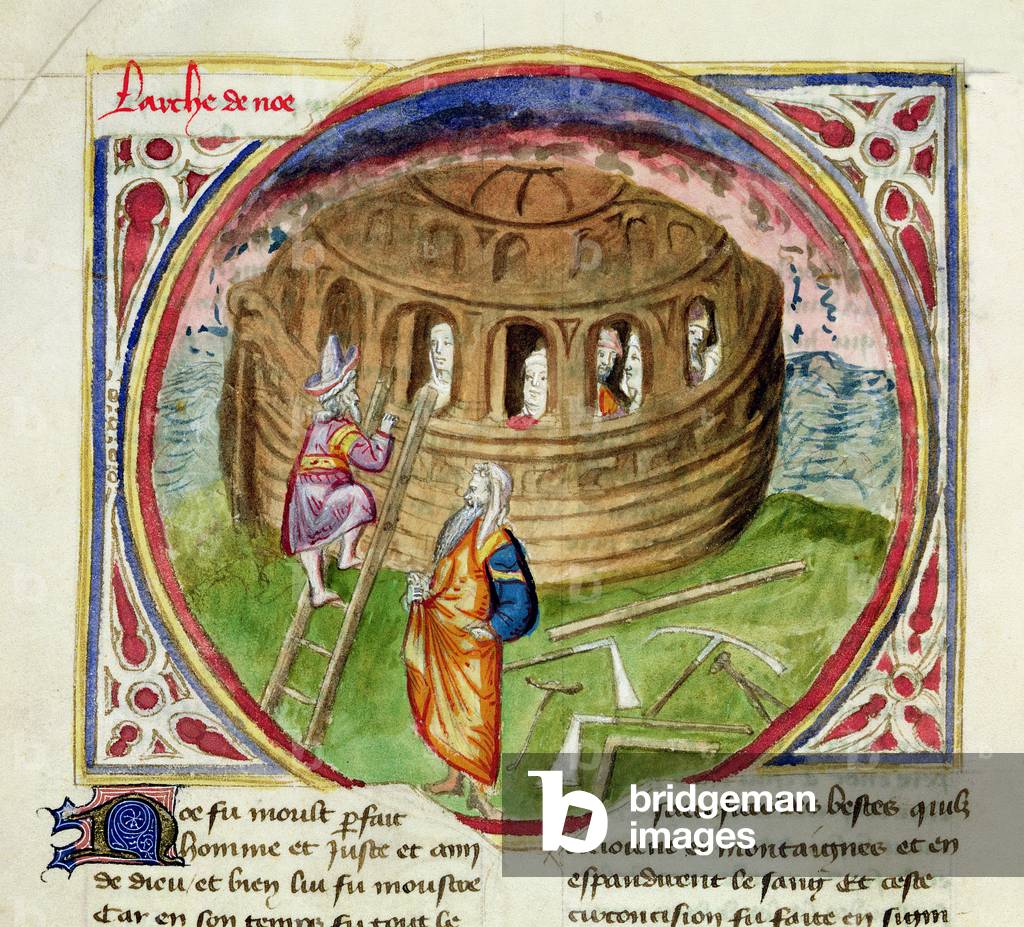 Larche de noe
Noe fu moult p̱fait
homme et Juste et amy
de dieu / et bien lui fu moustre
Car en son temps fu tout le
bestes quilz
montaignes et en
espandirent le sang Et ceste
circoncision fu faite en sign
bridgeman
images